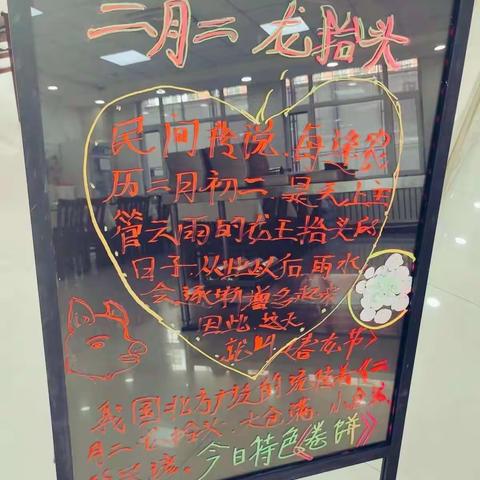 二月二 龙抬头
民间传说,每逢农
历二月初二,是天上主
管云雨的龙王抬头的
日子,从此以后,雨水
会逐渐增多起来
因此,这天
就叫《春龙节》
我国北方广泛的流传着《二
月二龙抬头,大仓满,小仓流
今日特色卷饼》